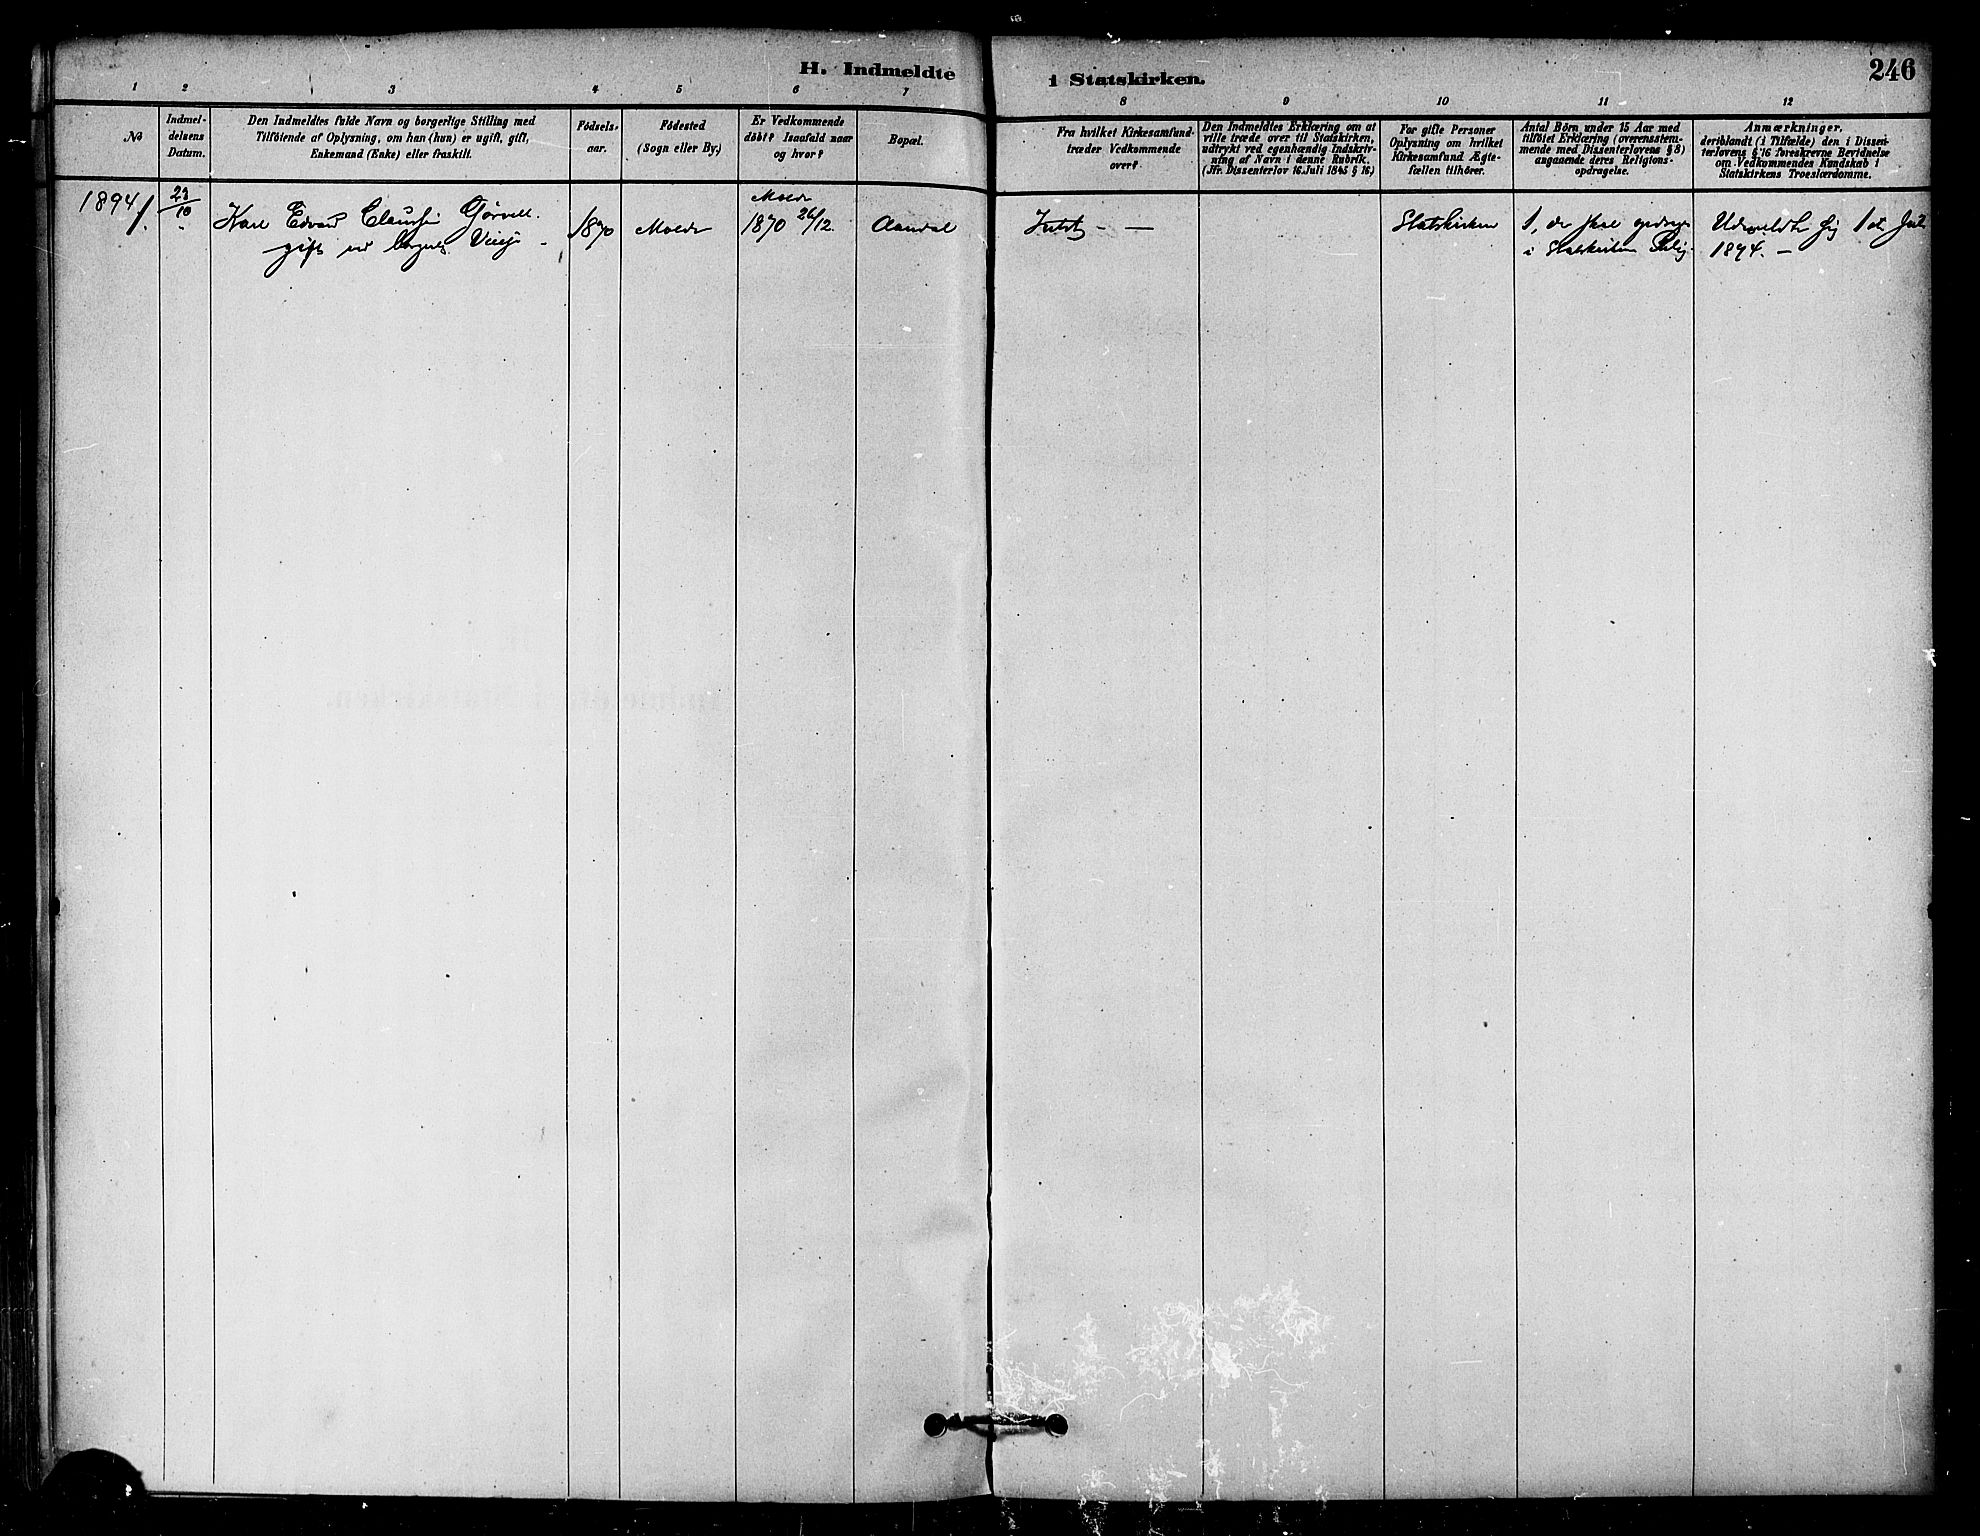 H. Indmeldte i Statskirken.
246
1 2 3 4 5 6 7 8 9 10 11 12
№
Indmel-
delsens
Datum.
Den Indmeldtes fulde Navn og borgerlige Stilling med
Tilföiende af Oplysning, om han (hun) er ugift, gift,
Enkemand (Enke) eller fraskilt.
Födsels-
aar.
Födested
(Sogn eller By.)
Er Vedkommende
döbt? Isaafald naar
og hvor?
Bopæl.
Fra hvilket Kirkesamfund
træder Vedkommende
over?
Den Indmeldtes Erklæring om at
ville træde over til Statskirken,
udtrykt ved egenhændig Indskriv-
ning af Navn i denne Rubrik.
(Jfr. Dissenterlov 16. Juli 1845 § 16)
For gifte Personer
Oplysning om hvilket
Kirkesamfund Ægte-
fællen tilhörer.
Antal Börn under 15 Aar med
tilföiet Erklæring (overensstem-
mende med Dissenterlovens § 8)
angaaende deres Religions-
opdragelse.
Anmærkninger,
deriblandt (i Tilfælde) den i Dissen-
terlovens § 16 foreskrevne Bevidnelse
om Vedkommendes Kundskab i
Statskirkens Troeslærdomme.
1894
1.
23/10
Karl Edvard Claussen Gørvell.
gift
1870
Molde
Molde
1870 26/12.
Aandal
Statskirken
1, der skal opdrages
i Statskirkens Relig.
Udmeldte sig 1ste Juli
1894. —